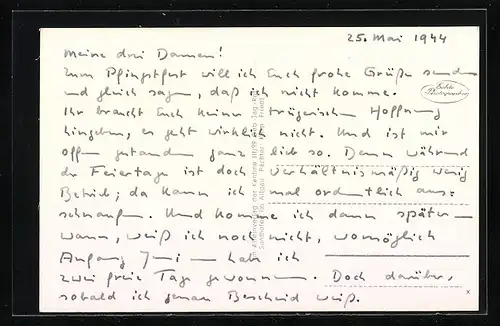 25. Mai 1944
Meine drei Damen!
Zum Pfingstfest will ich Euch frohe Grüße senden
und gleich sagen, daß ich nicht komme.
Ihr braucht Euch keiner trügerisch Hoffnung
hingeben, es geht wirklich nicht. Und ist mir
offen gestanden ganz lieb so. Denn während
der Feiertage ist doch verhältnismäßig wenig
Betrieb; da kann ich mal ordentlich aus=
schnaufen. Und komme ich dann später –
wann, weiß ich noch nicht, womöglich
Anfang Juni – habe ich
zwei freie Tage gewonnen. Doch darüber,
sobald ich genau Bescheid weiß.
Echte
Photographie